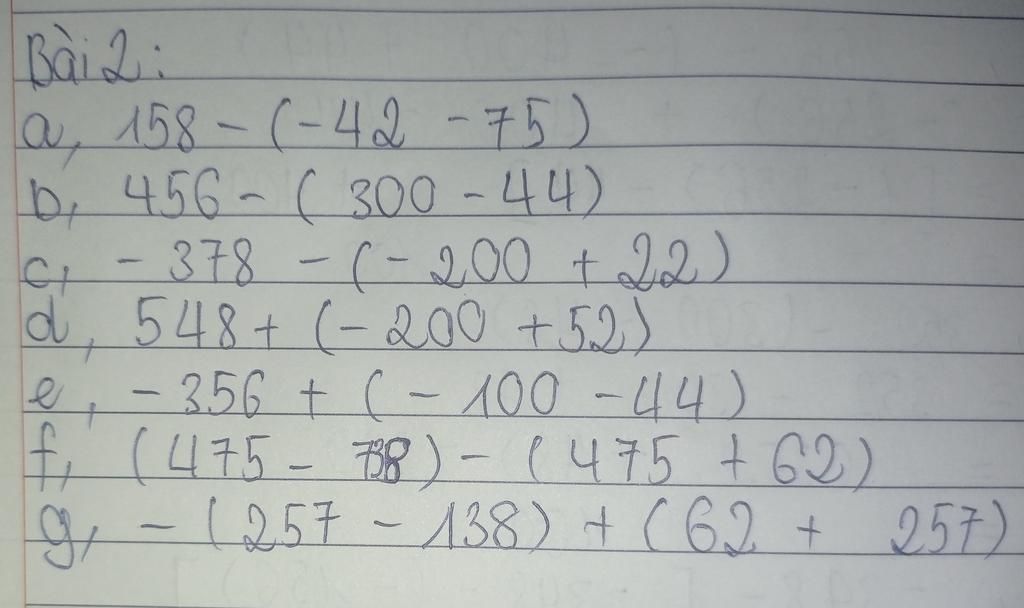 Bài 2:
a, 158 - (-42 - 75)
b, 456 - ( 300 - 44)
c, - 378 - (- 200 + 22)
d, 548 + (- 200 + 52)
e, - 356 + ( - 100 - 44)
f, (475 - 738) - (475 + 62)
g, - (257 - 138) + (62 + 257)